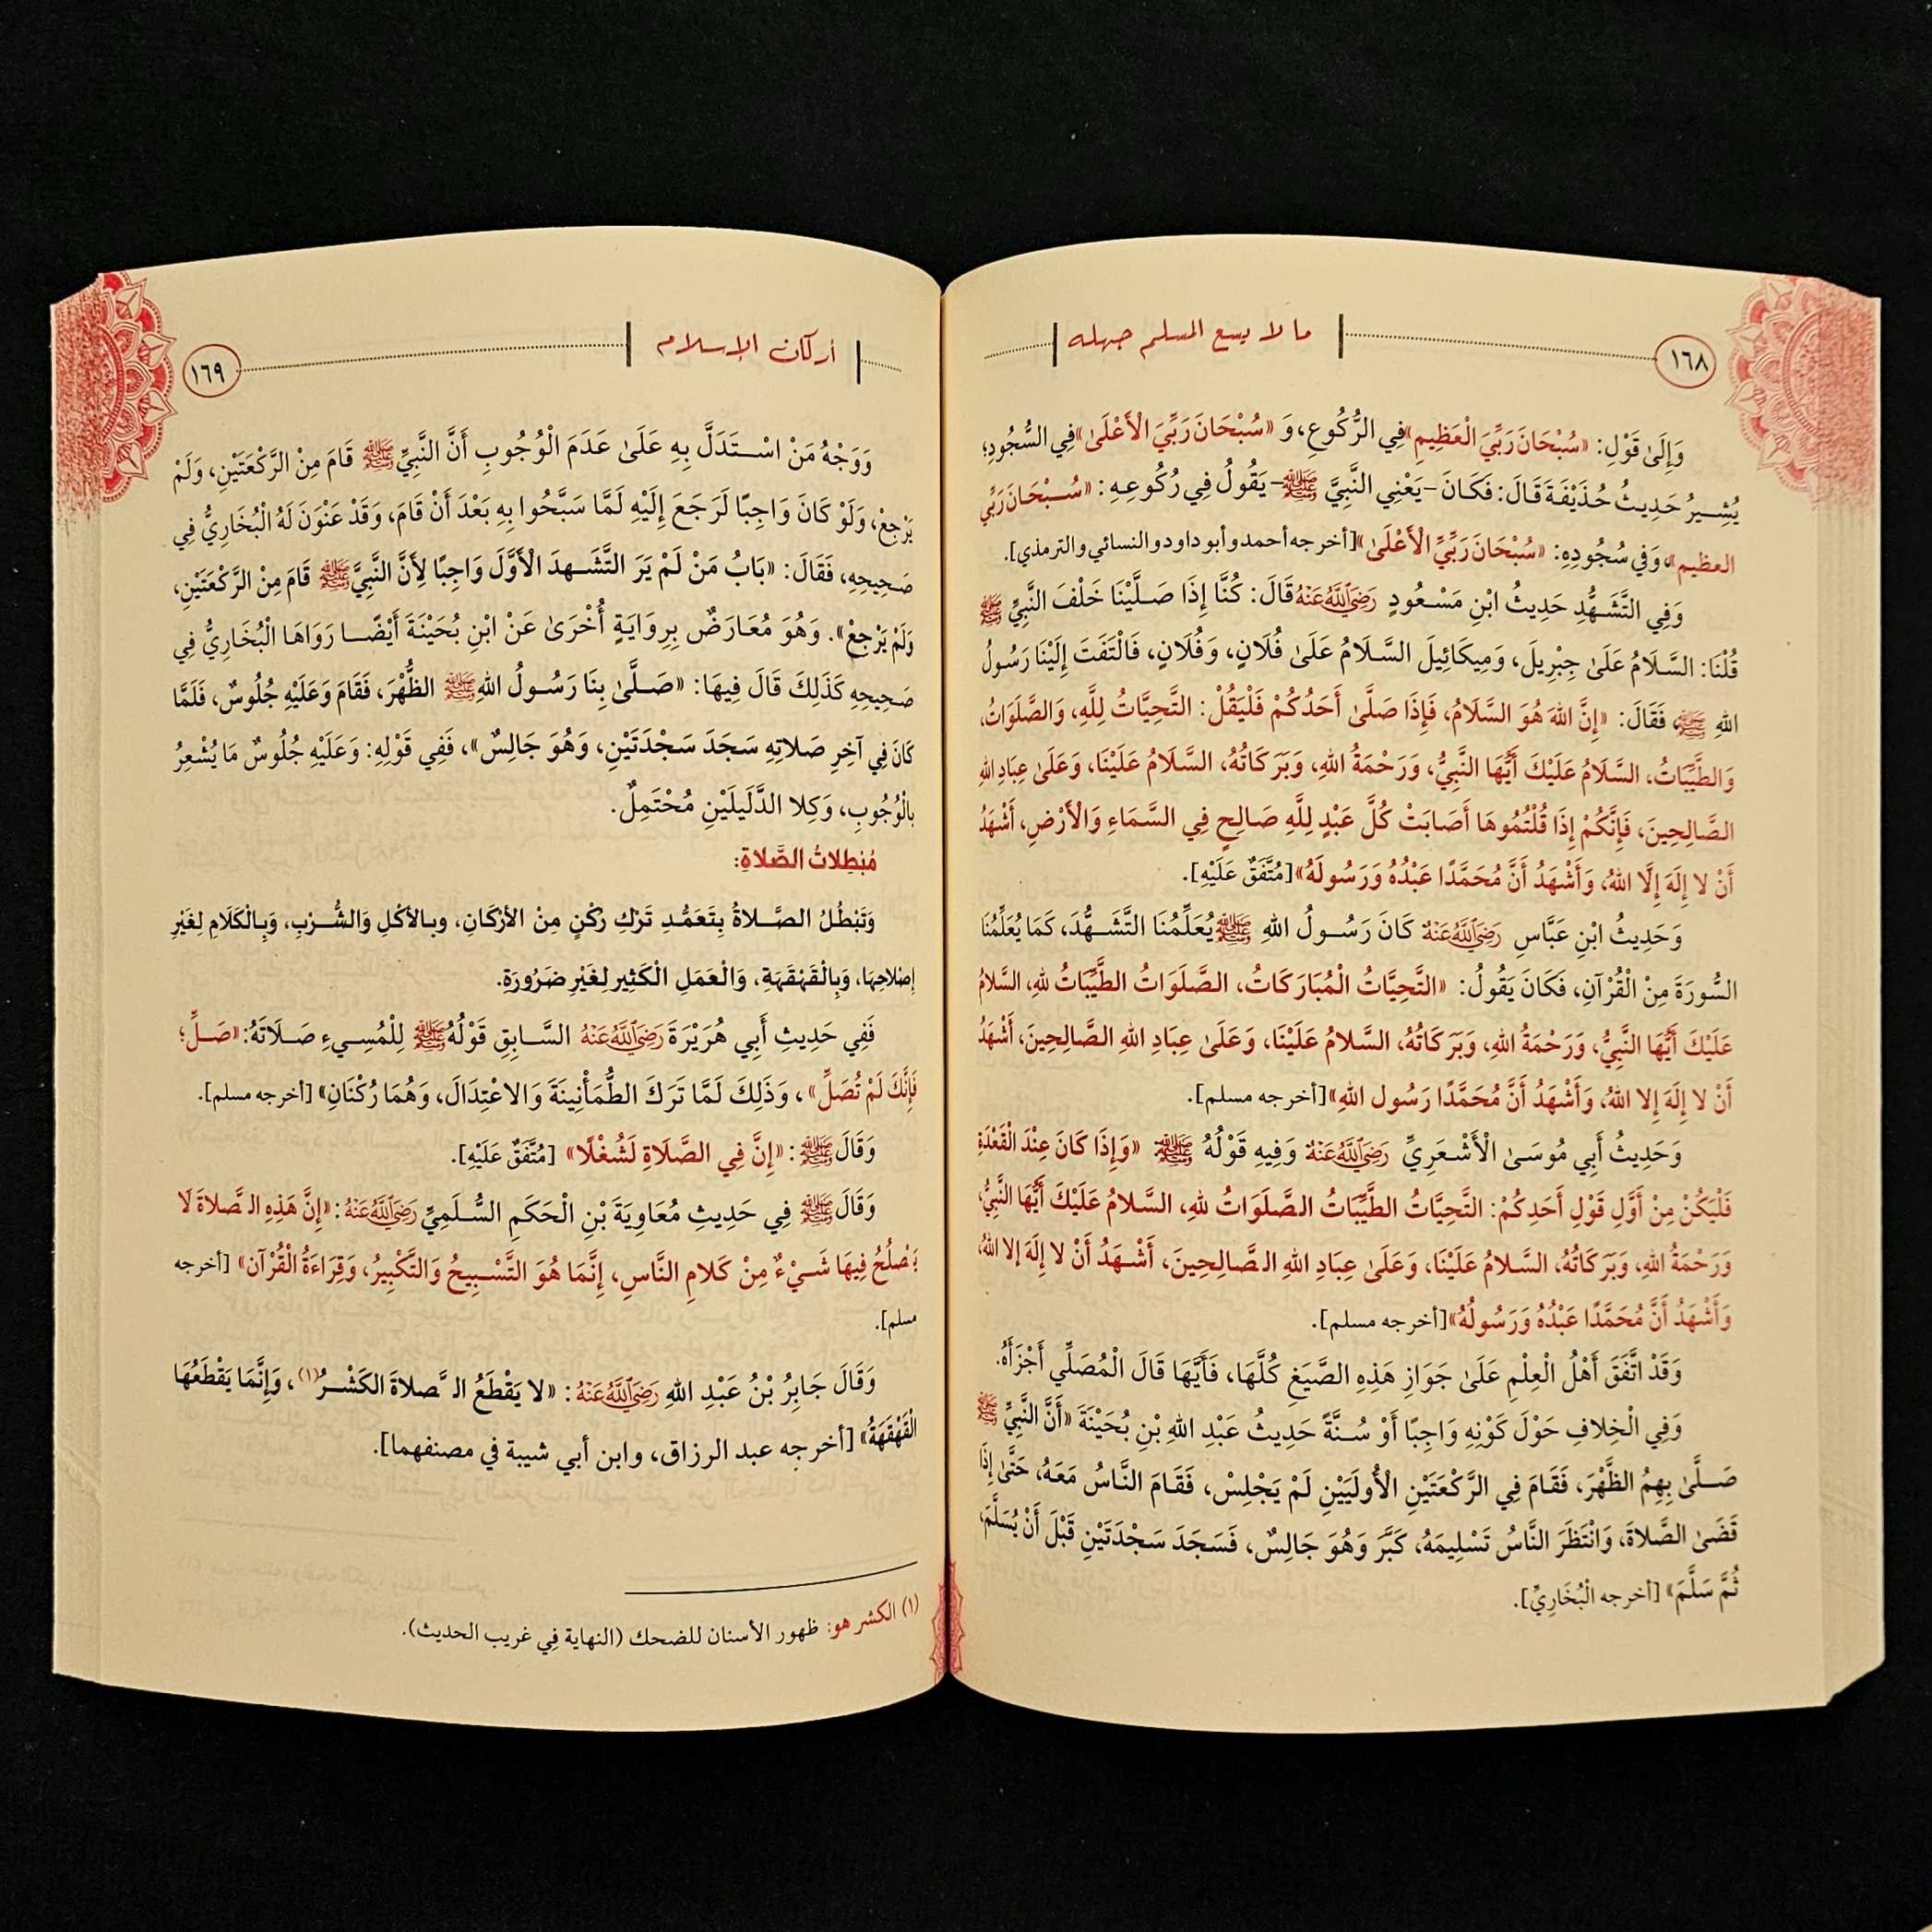 ما لا يسع المسلم جهله
١٦٨
وَإِلَىٰ قَوْلِ: «سُبْحَانَ رَبِّيَ الْعَظِيمِ» فِي الرُّكُوعِ، وَ «سُبْحَانَ رَبِّيَ الْأَعْلَىٰ» فِي السُّجُودِ؛
يُشِيرُ حَدِيثُ حُذَيْفَةَ قَالَ: فَكَانَ -يَعْنِي النَّبِيَّ ﷺ- يَقُولُ فِي رُكُوعِهِ: «سُبْحَانَ رَبِّيَ
العظيم»، وَفِي سُجُودِهِ: «سُبْحَانَ رَبِّيَ الْأَعْلَىٰ» [أخرجه أحمد وأبو داود والنسائي والترمذي].
وَفِي التَّشَهُّدِ حَدِيثُ ابْنِ مَسْعُودٍ رَضِيَ اللَّهُ عَنْهُ قَالَ: كُنَّا إِذَا صَلَّيْنَا خَلْفَ النَّبِيِّ ﷺ
قُلْنَا: السَّلَامُ عَلَىٰ جِبْرِيلَ، وَمِيكَائِيلَ السَّلَامُ عَلَىٰ فُلَانٍ، وَفُلَانٍ، فَالْتَفَتَ إِلَيْنَا رَسُولُ
اللهِ ﷺ فَقَالَ: «إِنَّ اللهَ هُوَ السَّلَامُ، فَإِذَا صَلَّىٰ أَحَدُكُمْ فَلْيَقُلْ: التَّحِيَّاتُ لِلَّهِ، وَالصَّلَوَاتُ،
وَالطَّيِّبَاتُ، السَّلَامُ عَلَيْكَ أَيُّهَا النَّبِيُّ، وَرَحْمَةُ اللهِ، وَبَرَكَاتُهُ، السَّلَامُ عَلَيْنَا، وَعَلَىٰ عِبَادِ اللهِ
الصَّالِحِينَ، فَإِنَّكُمْ إِذَا قُلْتُمُوهَا أَصَابَتْ كُلَّ عَبْدٍ لِلَّهِ صَالِحٍ فِي السَّمَاءِ وَالْأَرْضِ، أَشْهَدُ
أَنْ لا إِلَهَ إِلَّا اللهُ، وَأَشْهَدُ أَنَّ مُحَمَّدًا عَبْدُهُ وَرَسُولُهُ» [مُتَّفَقٌ عَلَيْهِ].
وَحَدِيثُ ابْنِ عَبَّاسٍ رَضِيَ اللَّهُ عَنْهُ كَانَ رَسُولُ اللهِ ﷺ يُعَلِّمُنَا التَّشَهُّدَ، كَمَا يُعَلِّمُنَا
السُّورَةَ مِنْ الْقُرْآنِ، فَكَانَ يَقُولُ: «التَّحِيَّاتُ الْمُبَارَكَاتُ، الصَّلَوَاتُ الطَّيِّبَاتُ للهِ، السَّلامُ
عَلَيْكَ أَيُّهَا النَّبِيُّ، وَرَحْمَةُ اللهِ، وَبَرَكَاتُهُ، السَّلامُ عَلَيْنَا، وَعَلَىٰ عِبَادِ اللهِ الصَّالِحِينَ، أَشْهَدُ
أَنْ لا إِلَهَ إِلا اللهُ، وَأَشْهَدُ أَنَّ مُحَمَّدًا رَسُول اللهِ» [أخرجه مسلم].
وَحَدِيثُ أَبِي مُوسَىٰ الْأَشْعَرِيِّ رَضِيَ اللَّهُ عَنْهُ وَفِيهِ قَوْلُهُ ﷺ «وَإِذَا كَانَ عِنْدَ الْقَعْدَةِ
فَلْيَكُنْ مِنْ أَوَّلِ قَوْلِ أَحَدِكُمْ: التَّحِيَّاتُ الطَّيِّبَاتُ الصَّلَوَاتُ للهِ، السَّلامُ عَلَيْكَ أَيُّهَا النَّبِيُّ،
وَرَحْمَةُ اللهِ، وَبَرَكَاتُهُ، السَّلامُ عَلَيْنَا، وَعَلَى عِبَادِ اللهِ الصَّالِحِينَ، أَشْهَدُ أَنْ لا إِلَهَ إلا اللهُ،
وَأَشْهَدُ أَنَّ مُحَمَّدًا عَبْدُهُ وَرَسُولُهُ» [أخرجه مسلم].
وَقَدْ اتَّفَقَ أَهْلُ الْعِلْمِ عَلَىٰ جَوَازِ هَذِهِ الصَّيَغِ كُلِّهَا، فَأَيَّهَا قَالَ الْمُصَلِّي أَجْزَأَهُ.
وَفِي الْخِلافِ حَوْلَ كَوْنِهِ وَاجِبًا أَوْ سُنَّةً حَدِيثُ عَبْدِ اللهِ بْنِ بُحَيْنَةَ «أَنَّ النَّبِيِّ ﷺ
صَلَّىٰ بِهِمُ الظُّهْرَ، فَقَامَ فِي الرَّكْعَتَيْنِ الْأُولَيَيْنِ لَمْ يَجْلِسْ، فَقَامَ النَّاسُ مَعَهُ، حَتَّىٰ إِذَا
قَضَىٰ الصَّلَاةَ، وَانْتَظَرَ النَّاسُ تَسْلِيمَهُ، كَبَّرَ وَهُوَ جَالِسٌ، فَسَجَدَ سَجْدَتَيْنِ قَبْلَ أَنْ يُسَلِّمَ،
ثُمَّ سَلَّمَ» [أخرجه الْبُخَارِيِّ].
أركان الإسلام
١٦٩
وَوَجْهُ مَنْ اسْتَدَلَّ بِهِ عَلَىٰ عَدَمَ الْوُجُوبِ أَنَّ النَّبِيِّ ﷺ قَامَ مِنْ الرَّكْعَتَيْنِ، وَلَمْ
يَرْجِعْ، وَلَوْ كَانَ وَاجِبًا لَرَجَعَ إِلَيْهِ لَمَّا سَبَّحُوا بِهِ بَعْدَ أَنْ قَامَ، وَقَدْ عَنْوَنَ لَهُ الْبُخَارِيُّ فِي
صَحِيحِهِ، فَقَالَ: «بَابُ مَنْ لَمْ يَرَ التَّشَهدَ الْأَوَّلَ وَاجِبًا لِأَنَّ النَّبِيَّ ﷺ قَامَ مِنْ الرَّكْعَتَيْنِ،
وَلَمْ يَرْجِعْ». وَهُوَ مُعَارَضٌ بِرِوَايَةٍ أُخْرَىٰ عَنْ ابْنِ بُحَيْنَةَ أَيْضًا رَوَاهَا الْبُخَارِيُّ فِي
صَحِيحِهِ كَذَلِكَ قَالَ فِيهَا: «صَلَّىٰ بِنَا رَسُولُ اللهِ ﷺ الظُّهْرَ، فَقَامَ وَعَلَيْهِ جُلُوسٌ، فَلَمَّا
كَانَ فِي آخِرِ صَلاتِهِ سَجَدَ سَجْدَتَيْنِ، وَهُوَ جَالِسٌ»، فَفِي قَوْلِهِ: وَعَلَيْهِ جُلُوسٌ مَا يُشْعِرُ
بِالْوُجُوبِ، وَكِلا الدَّلَيلَيْنِ مُحْتَمِلٌ.
مُبْطِلاتُ الصَّلاةِ:
وَتَبْطُلُ الصَّلاةُ بِتَعَمُّدِ تَرْكِ رُكْنٍ مِنْ الأرْكَانِ، وبالأكْلِ وَالشُّرْبِ، وَبِالْكَلَامِ لِغَيْرِ
إصْلاحِهَا، وَبِالْقَهْقَهَةِ، وَالْعَمَلِ الْكَثِيرِ لِغَيْرِ ضَرُورَةٍ.
فَفِي حَدِيثِ أَبِي هُرَيْرَةَ رَضِيَ اللَّهُ عَنْهُ السَّابِقِ قَوْلُهُ ﷺ لِلْمُسِيءِ صَلَاتَهُ: «صَلِّ؛
فَإِنَّكَ لَمْ تُصَلِّ»، وَذَلِكَ لَمَّا تَرَكَ الطُّمَأْنِينَةَ وَالاعْتِدَالَ، وَهُمَا رُكْنَانِ» [أخرجه مسلم].
وَقَالَ ﷺ: «إِنَّ فِي الصَّلَاةِ لَشُغْلًا» [مُتَّفَقٌ عَلَيْهِ].
وَقَالَ ﷺ فِي حَدِيثِ مُعَاوِيَةَ بْنِ الْحَكَمِ السُّلَمِيِّ رَضِيَ اللَّهُ عَنْهُ: «إِنَّ هَذِهِ الصَّلاةَ لَا
يَصْلُحُ فِيهَا شَيْءٌ مِنْ كَلامِ النَّاسِ، إِنَّمَا هُوَ التَّسْبِيحُ وَالتَّكْبِيرُ، وَقِرَاءَةُ الْقُرْآن» [أخرجه
مسلم].
وَقَالَ جَابِرُ بْنُ عَبْدِ اللهِ رَضِيَ اللَّهُ عَنْهُ: «لا يَقْطَعُ الصَّلاةَ الكَشْرُ(١)، وَإِنَّمَا يَقْطَعُهَا
الْقَهْقَهَةُ» [أخرجه عبد الرزاق، وابن أبي شيبة في مصنفهما].
(١) الكشر هو: ظهور الأسنان للضحك (النهاية فِي غريب الحديث).